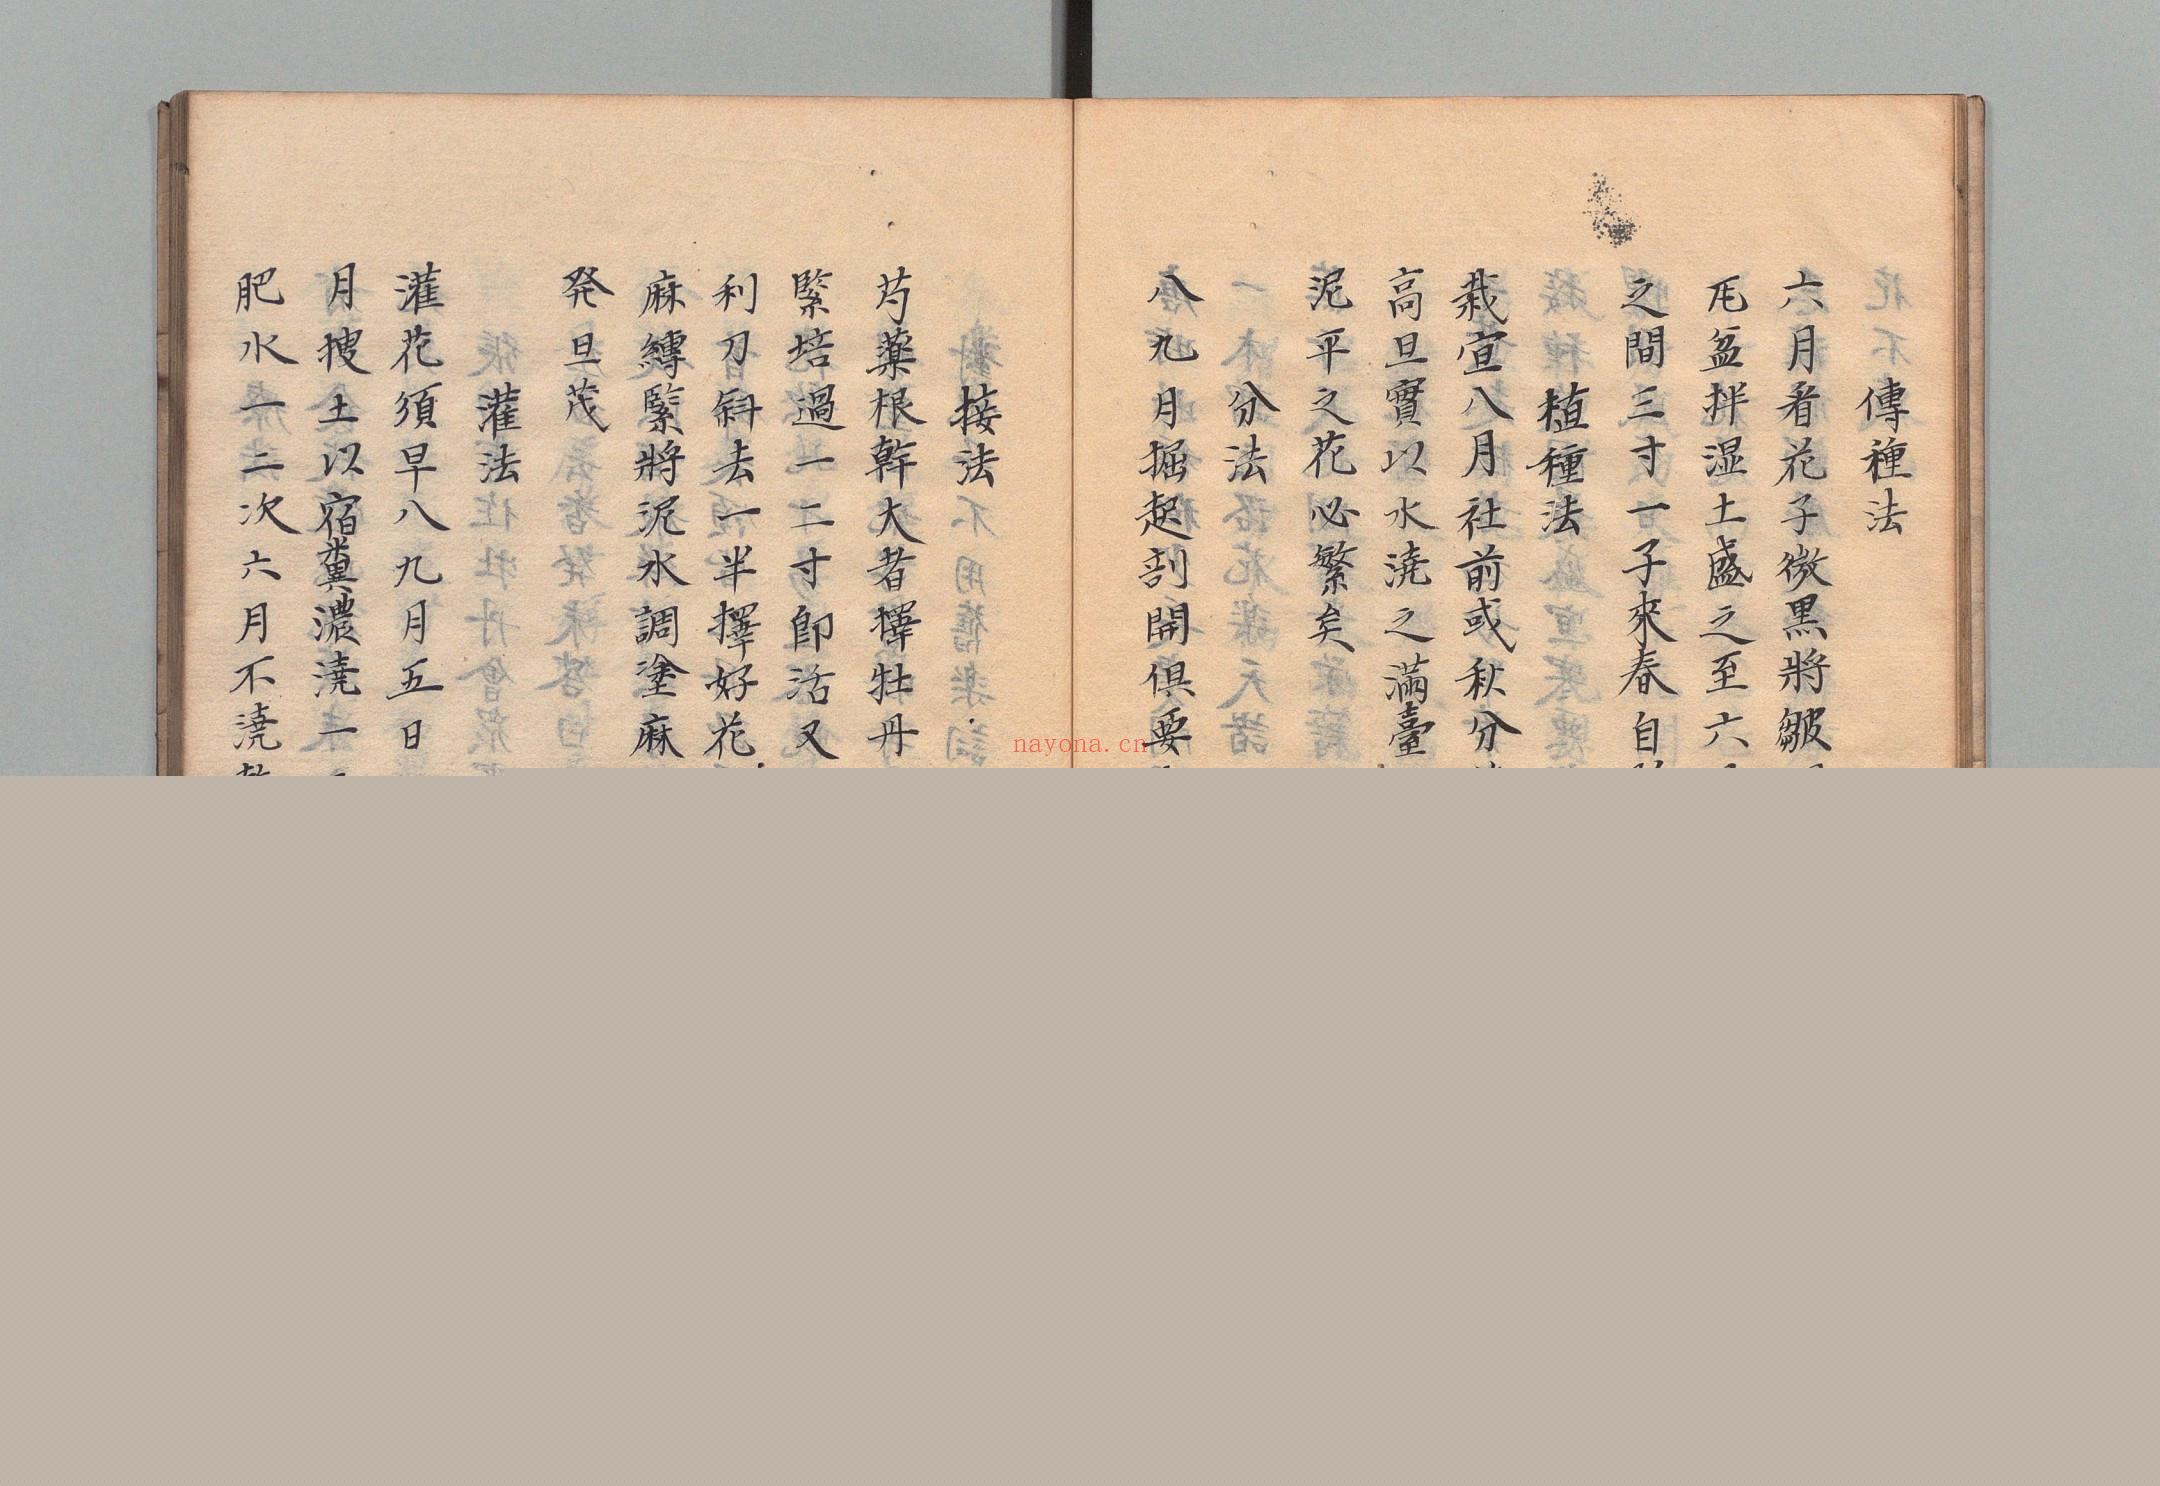 傳種法
六月看花子微黒將皱
瓦盆拌湿土盛之至六
之間三寸一子來春自
植種法
栽宣八月社前或秋分
高旦實以水澆之滿臺
泥平之花必繁矣
分法
八九月掘起剖開俱要
接法
芍薬根幹大者擇牡丹
緊培過一二寸即活又
利刀斜去一半擇好花
麻縛緊將泥水調塗麻
発旦茂
灌法
灌花須早八九月五日
月捜土以宿糞濃澆一
肥水一二次六月不澆
nayona.cn